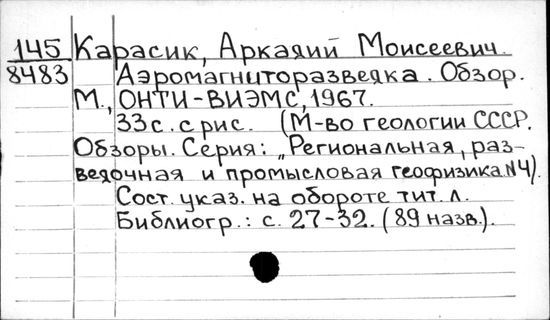 145 Карасик, Аркадий Моисеевич.
8483 Аэромагниторазведка. Обзор.
М., ОНТИ-ВИЭМС, 1967.
33с. с рис. (М-во геологии СССР.
Обзоры. Серия: „Региональная, раз-
ведочная и промысловая геофизика N4).
Сост. указ. на обороте тит. л.
Библиогр.: с. 27-32. (89 назв.).